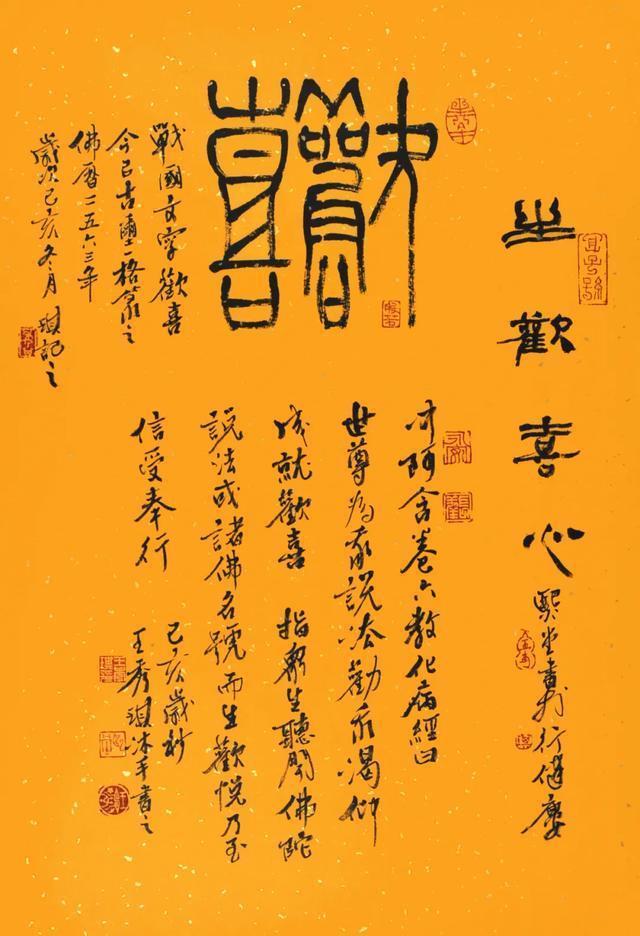 生歡喜心
熙堂書於行健廬
宜子孫
歡喜
戰國文字歡喜
今以古璽一格篆之
佛曆二五六三年
歲次己亥冬月 琪記之
中阿含卷六教化病經曰
世尊為我說法勸我渴仰
成就歡喜 指眾生聽聞佛陀
說法或諸佛名號而生歡悅乃至
信受奉行
己亥歲杪
王秀琪沐手書之